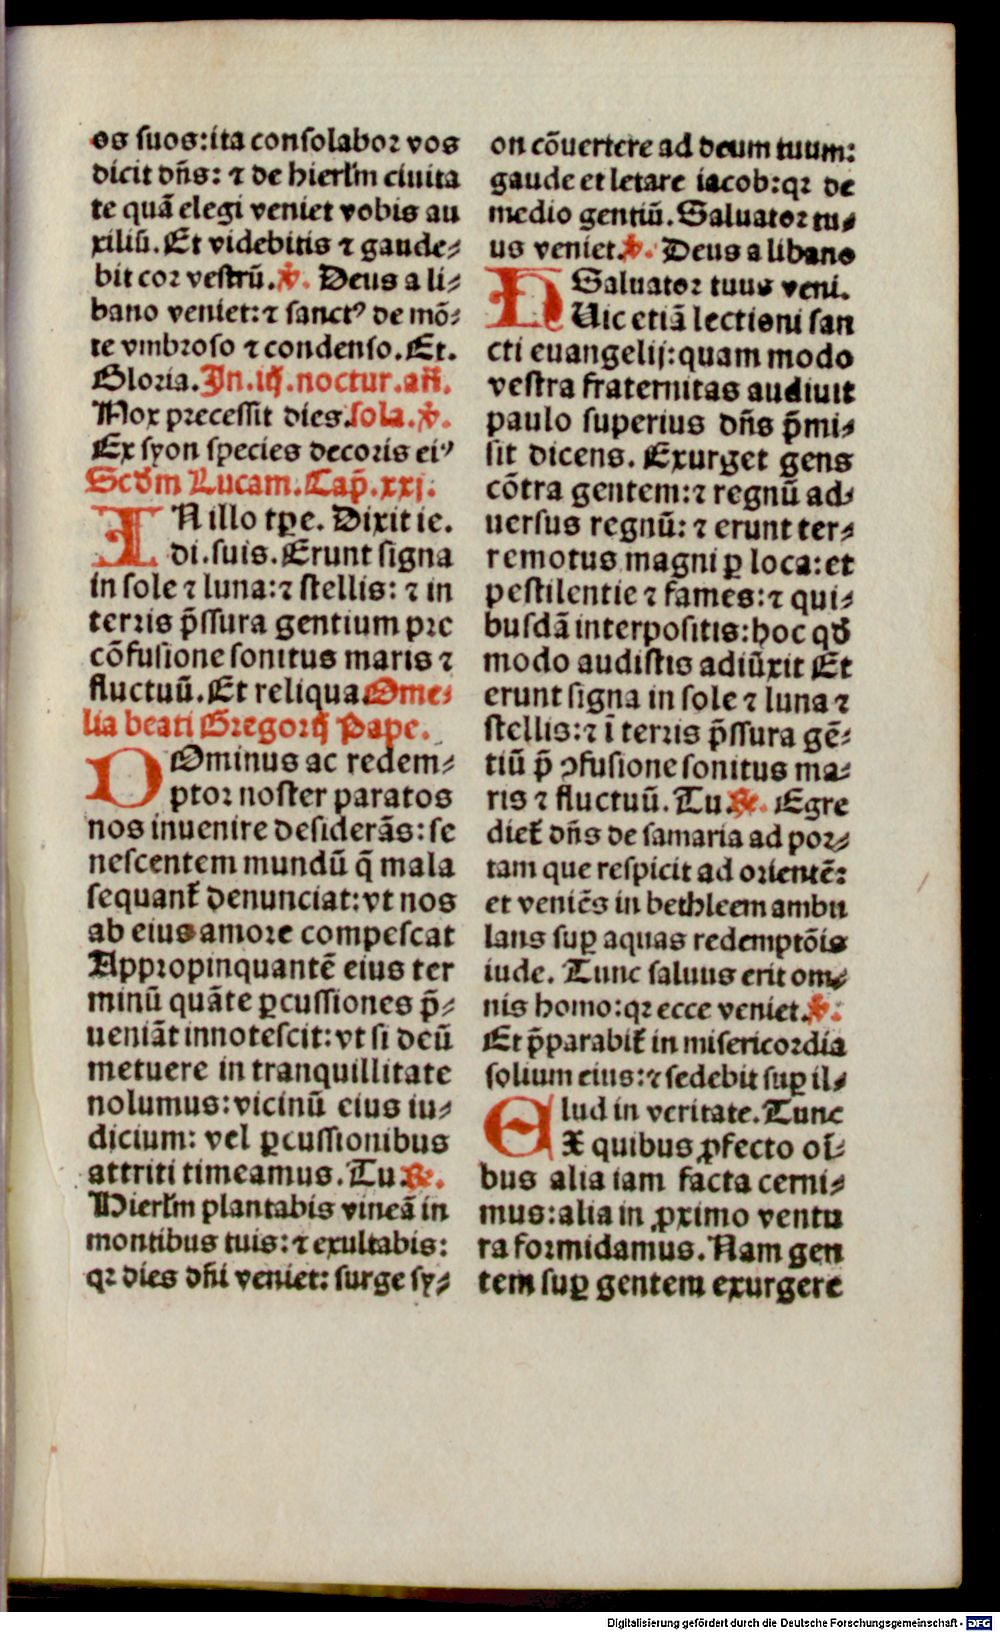 os suos:ita consolabor vos
dicit dñs: ⁊ de hierl̃m ciuita
te quã elegi veniet vobis au
xiliũ. Et videbitis ⁊ gaude⸗
bit cor vestrũ. ℣. Deus a li⸗
bano veniet:⁊ sanctꝰ de mõ⸗
te vmbroso ⁊ condenso. Et.
Gloria. In.iij.noctur.añ.
Nox precessit dies.sola.℣.
Ex syon species decoris eiꝰ
Scđm Lucam. Cap̃.xxj.
IN illo tꝑe. Dixit ie.
di.suis. Erunt signa
in sole ⁊ luna:⁊ stellis: ⁊ in
terris p̃ssura gentium pre
cõfusione sonitus maris ⁊
fluctuũ. Et reliqua. Ome⸗
lia beati Gregorij Pape.
DOminus ac redem⸗
ptor noster paratos
nos inuenire desiderãs: se
nescentem mundũ q̃ mala
sequant᷑ denunciat: vt nos
ab eius amore compescat
Appropinquantẽ eius ter
minũ quãte ꝑcussiones p̃⸗
ueniãt innotescit: vt si deũ
metuere in tranquillitate
nolumus: vicinũ eius iu⸗
dicium: vel ꝑcussionibus
attriti timeamus. Tu. ℟.
Hierl̃m plantabis vineã in
montibus tuis: ⁊ exultabis:
qꝛ dies dñi veniet: surge sy⸗
on cõuertere ad deum tuum:
gaude et letare iacob:qꝛ de
medio gentiũ. Saluator tu⸗
us veniet. ℣. Deus a libano
Saluator tuus veni.
HUic etiã lectioni san
cti euangelij: quam modo
vestra fraternitas audiuit
paulo superius dñs p̃mi⸗
sit dicens. Exurget gens
cõtra gentem:⁊ regnũ ad⸗
uersus regnũ: ⁊ erunt ter⸗
remotus magni ꝑ loca: et
pestilentie ⁊ fames:⁊ qui⸗
busdã interpositis: hoc qđ
modo audistis adiũxit Et
erunt signa in sole ⁊ luna ⁊
stellis:⁊ ĩ terris p̃ssura gẽ⸗
tiũ p̃ ꝯfusione sonitus ma⸗
ris ⁊ fluctuũ. Tu. ℟. Egre
diet᷑ dñs de samaria ad por⸗
tam que respicit ad orientẽ:
et veniẽs in bethleem ambu
lans suꝑ aquas redemptõis
iude. Tunc saluus erit om⸗
nis homo:qꝛ ecce veniet. ℣.
Et p̃parabit᷑ in misericordia
solium eius:⁊ sedebit suꝑ il⸗
lud in veritate. Tunc
EX quibus ꝓfecto oĩ⸗
bus alia iam facta cerni⸗
mus: alia in ꝓximo ventu
ra formidamus. Nam gen
tem suꝑ gentem exurgere
Digitalisierung gefördert durch die Deutsche Forschungsgemeinschaft - DFG